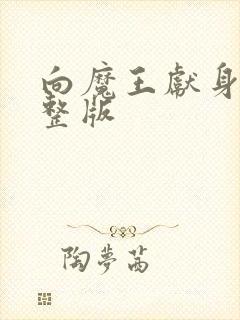 向魔王献身
整版
陶夢茜